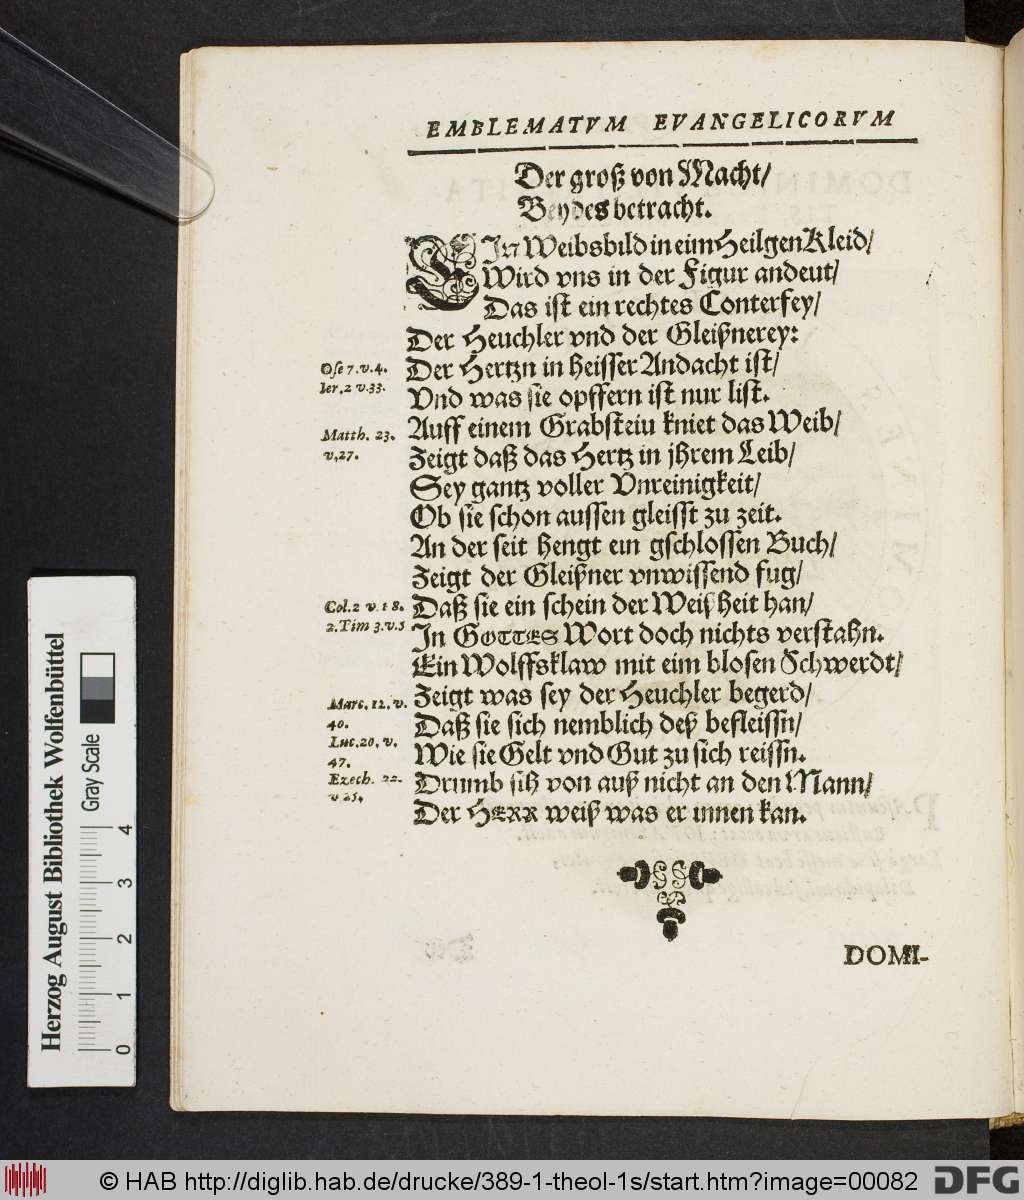 EMBLEMATVM EVANGELICORVM
Der groß von Macht/
Beydes betracht.
EIn Weibsbild in eim Heilgen Kleid/
Wird vns in der Figur andeut/
Das ist ein rechtes Conterfey/
Der Heuchler vnd der Gleißnerey:
Ose 7. v. 4.
Der Hertzn in heisser Andacht ist/
Ier. 2 v. 33.
Vnd was sie opffern ist nur list.
Matth. 23.
Auff einem Grabsteiu kniet das Weib/
v, 27.
Zeigt daß das Hertz in jhrem Leib/
Sey gantz voller Vnreinigkeit/
Ob sie schon aussen gleisst zu zeit.
An der seit hengt ein gschlossen Buch/
Zeigt der Gleißner vnwissend fug/
Col. 2 v. 18.
Daß sie ein schein der Weißheit han/
2. Tim 3. v. 5
In GOTTES Wort doch nichts verstahn.
Ein Wolffsklaw mit eim blosen Schwerdt/
Marc. 12. v.
Zeigt was sey der Heuchler begerd/
40.
Daß sie sich nemblich deß befleissn/
Luc. 20, v.
47.
Wie sie Gelt vnd Gut zu sich reissn.
Ezech. 22.
Drumb sih von auß nicht an den Mann/
v 25.
Der HERR weiß was er innen kan.
DOMI-
Herzog August Bibliothek Wolfenbüttel
Gray Scale
0 1 2 3 4
© HAB http://diglib.hab.de/drucke/389-1-theol-1s/start.htm?image=00082
DFG